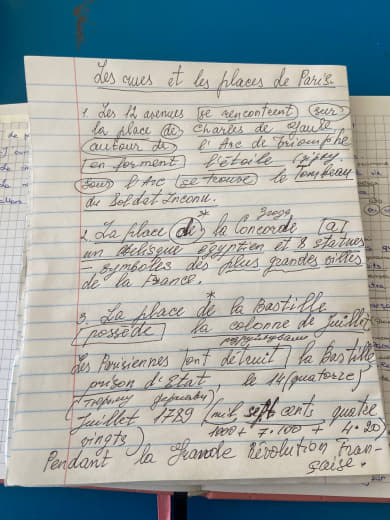 Les rues et les places de Paris.
1. Les 12 avenues se rencontrent sur
la place de Charles de Gaulle
autour de l'Arc de Triomphe
en forment l'étoile
sous l'Arc se trouve le Tombeau
du Soldat Inconu.
2. La place de la Concorde a
un obélisque égyptien et 8 statues
– symboles des plus grandes villes
de la France.
3. La place de la Bastille
possède la colonne de Juillet
Les Parisiennes ont détruit la Bastille
prison d'Etat, le 14 (quatorze)
Juillet 1789 (mil sept cents quatre
vingts) 1000 + 7·100 + 4·20)
Pendant la Grande Révolution Fran-
çaise.